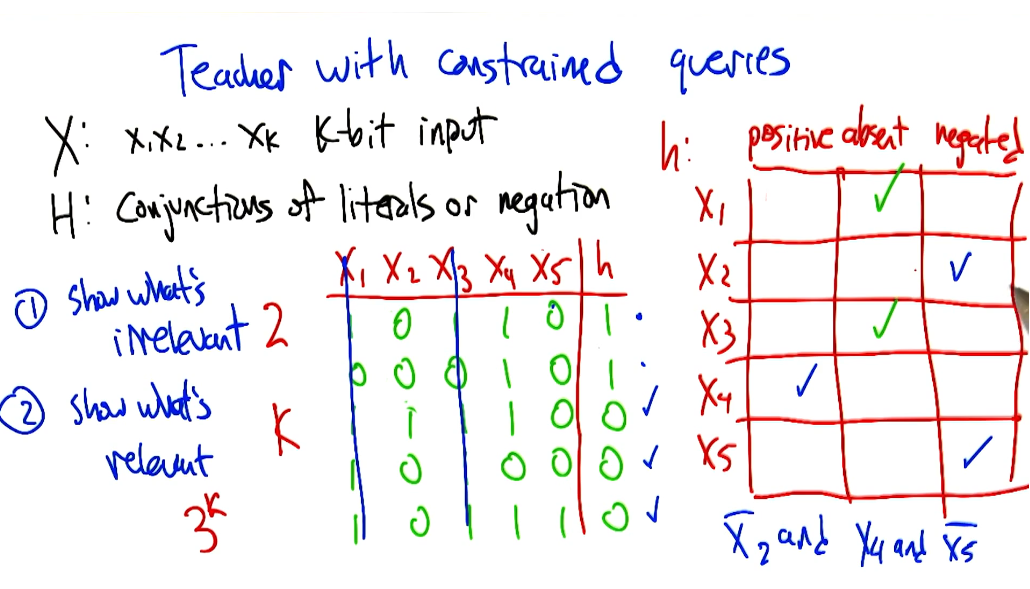 Teacher with constrained queries
X: x1x2... xk k-bit input
H: Conjunctions of literals or negation
① show what's irrelevant 2
② show what's relevant K
3^K
X1 X2 X3 X4 X5 h
1 0 1 1 0 1 .
0 0 0 1 0 1 .
1 1 1 1 0 0 ✓
1 0 0 0 0 ✓
1 0 1 1 1 0 ✓
h: positive absent negated
X1 ✓
X2 ✓
X3 ✓
X4 ✓
X5 ✓
X̅2 and X4 and X̅5